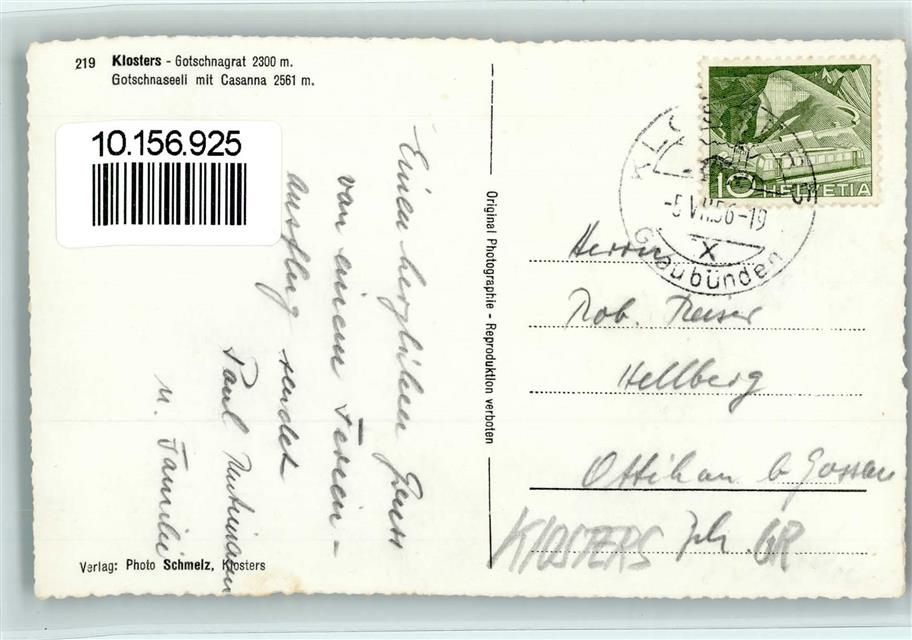 219 Klosters - Gotschnagrat 2300 m.
Gotschnaseeli mit Casanna 2561 m.
10.156.925
Einen herzlichen Gruss
von einem Ferien-
ausflug sendet
Paul
u. Familie
Verlag: Photo Schmelz, Klosters
Original Photographie - Reproduktion verboten
10 HELVETIA
KLOSTERS
-5.VII.56-19
X
Graubünden
Herrn
Rob.
Hellberg
Ottikon b Gossau
Zch.
KLOSTERS GR